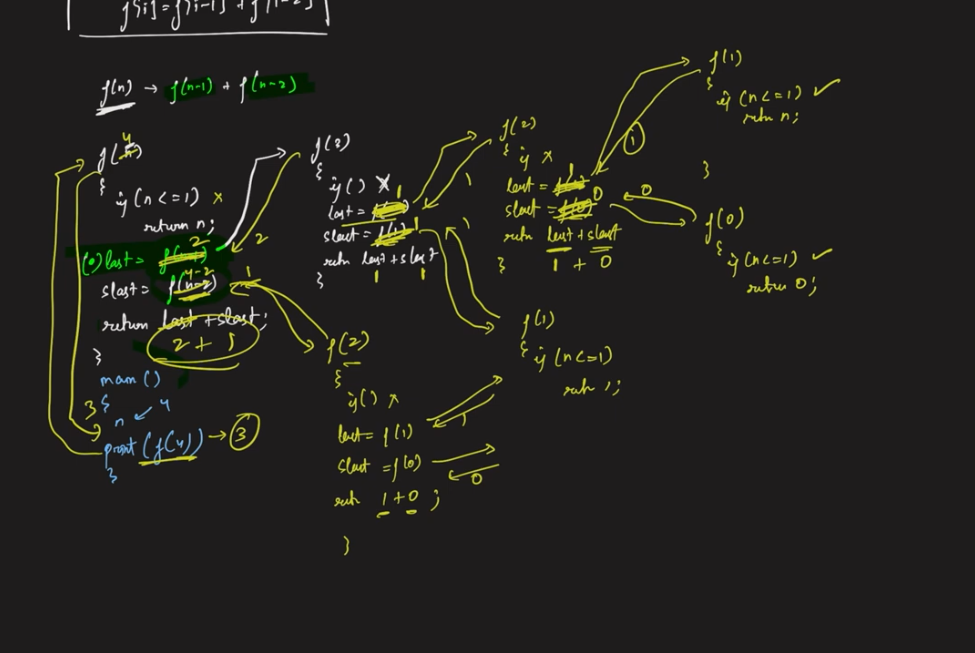 f[i]=f[i-1] + f[i-2]
f(n) → f(n-1) + f(n-2)
f(4)
{
if (n<=1) x
return n;
(•) last = 2
slast = f(n-2) 4-2
return last + slast;
2 + 1
}
main()
{
n ↙ 4
print (f(4)) → 3
}
3
f(3)
{
if() x
last = 1
slast = f(1) 1
retn last + slast
1 1
}
2
1
f(2)
{
if x
last = 1
slast = f(0) 0
retn last + slast
1 + 0
}
1
1
f(1)
{
if (n<=1) ✓
retn n;
}
1
0
f(0)
{
if (n<=1) ✓
return 0;
f(1)
{ if (n<=1)
retn 1;
f(2)
{
if() x
last = f(1)
1
slast = f(0)
0
retn 1 + 0 ;
}